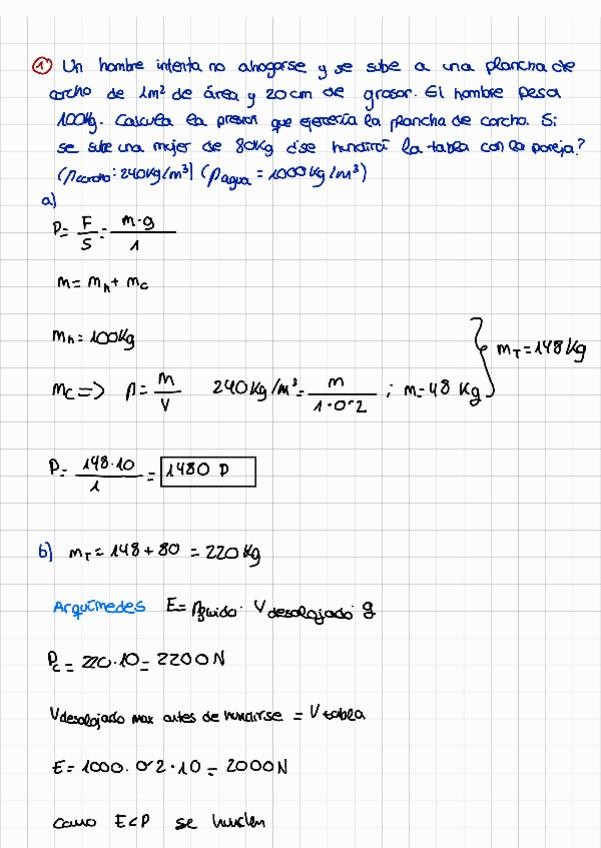 1 Un hombre intenta no ahogarse y se sube a una plancha de
corcho de 1m² de área y 20cm de grosor. El hombre pesa
100Kg. Calcula la presión que ejercería la plancha de corcho. Si
se sube una mujer de 80Kg ¿se hundirá la tabla con la pareja?
(ρcorcho: 240Kg/m³) (ρagua = 1000Kg/m³)
a)
P = F/S = m·g/1
m = mh + mc
mh = 100Kg
mc => ρ = m/V 240Kg/m³ = m/1·0'2 ; m = 48 Kg } mT = 148Kg
P = 148·10/1 = 1480 P
b) mT = 148 + 80 = 220Kg
Arquímedes E = ρfluido · Vdesalojado · g
Pc = 220·10 = 2200N
Vdesalojado max antes de hundirse = Vtabla
E = 1000 · 0'2 · 10 = 2000N
como E < P se hunden